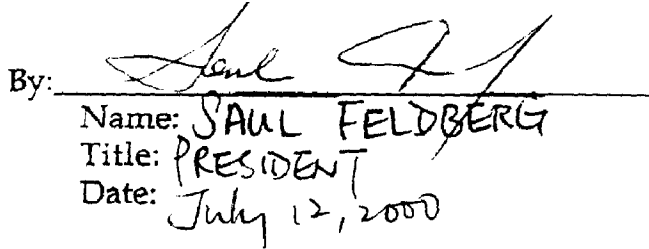 By: Saul
Name: SAUL FELDBERG
Title: PRESIDENT
Date: July 12, 2000